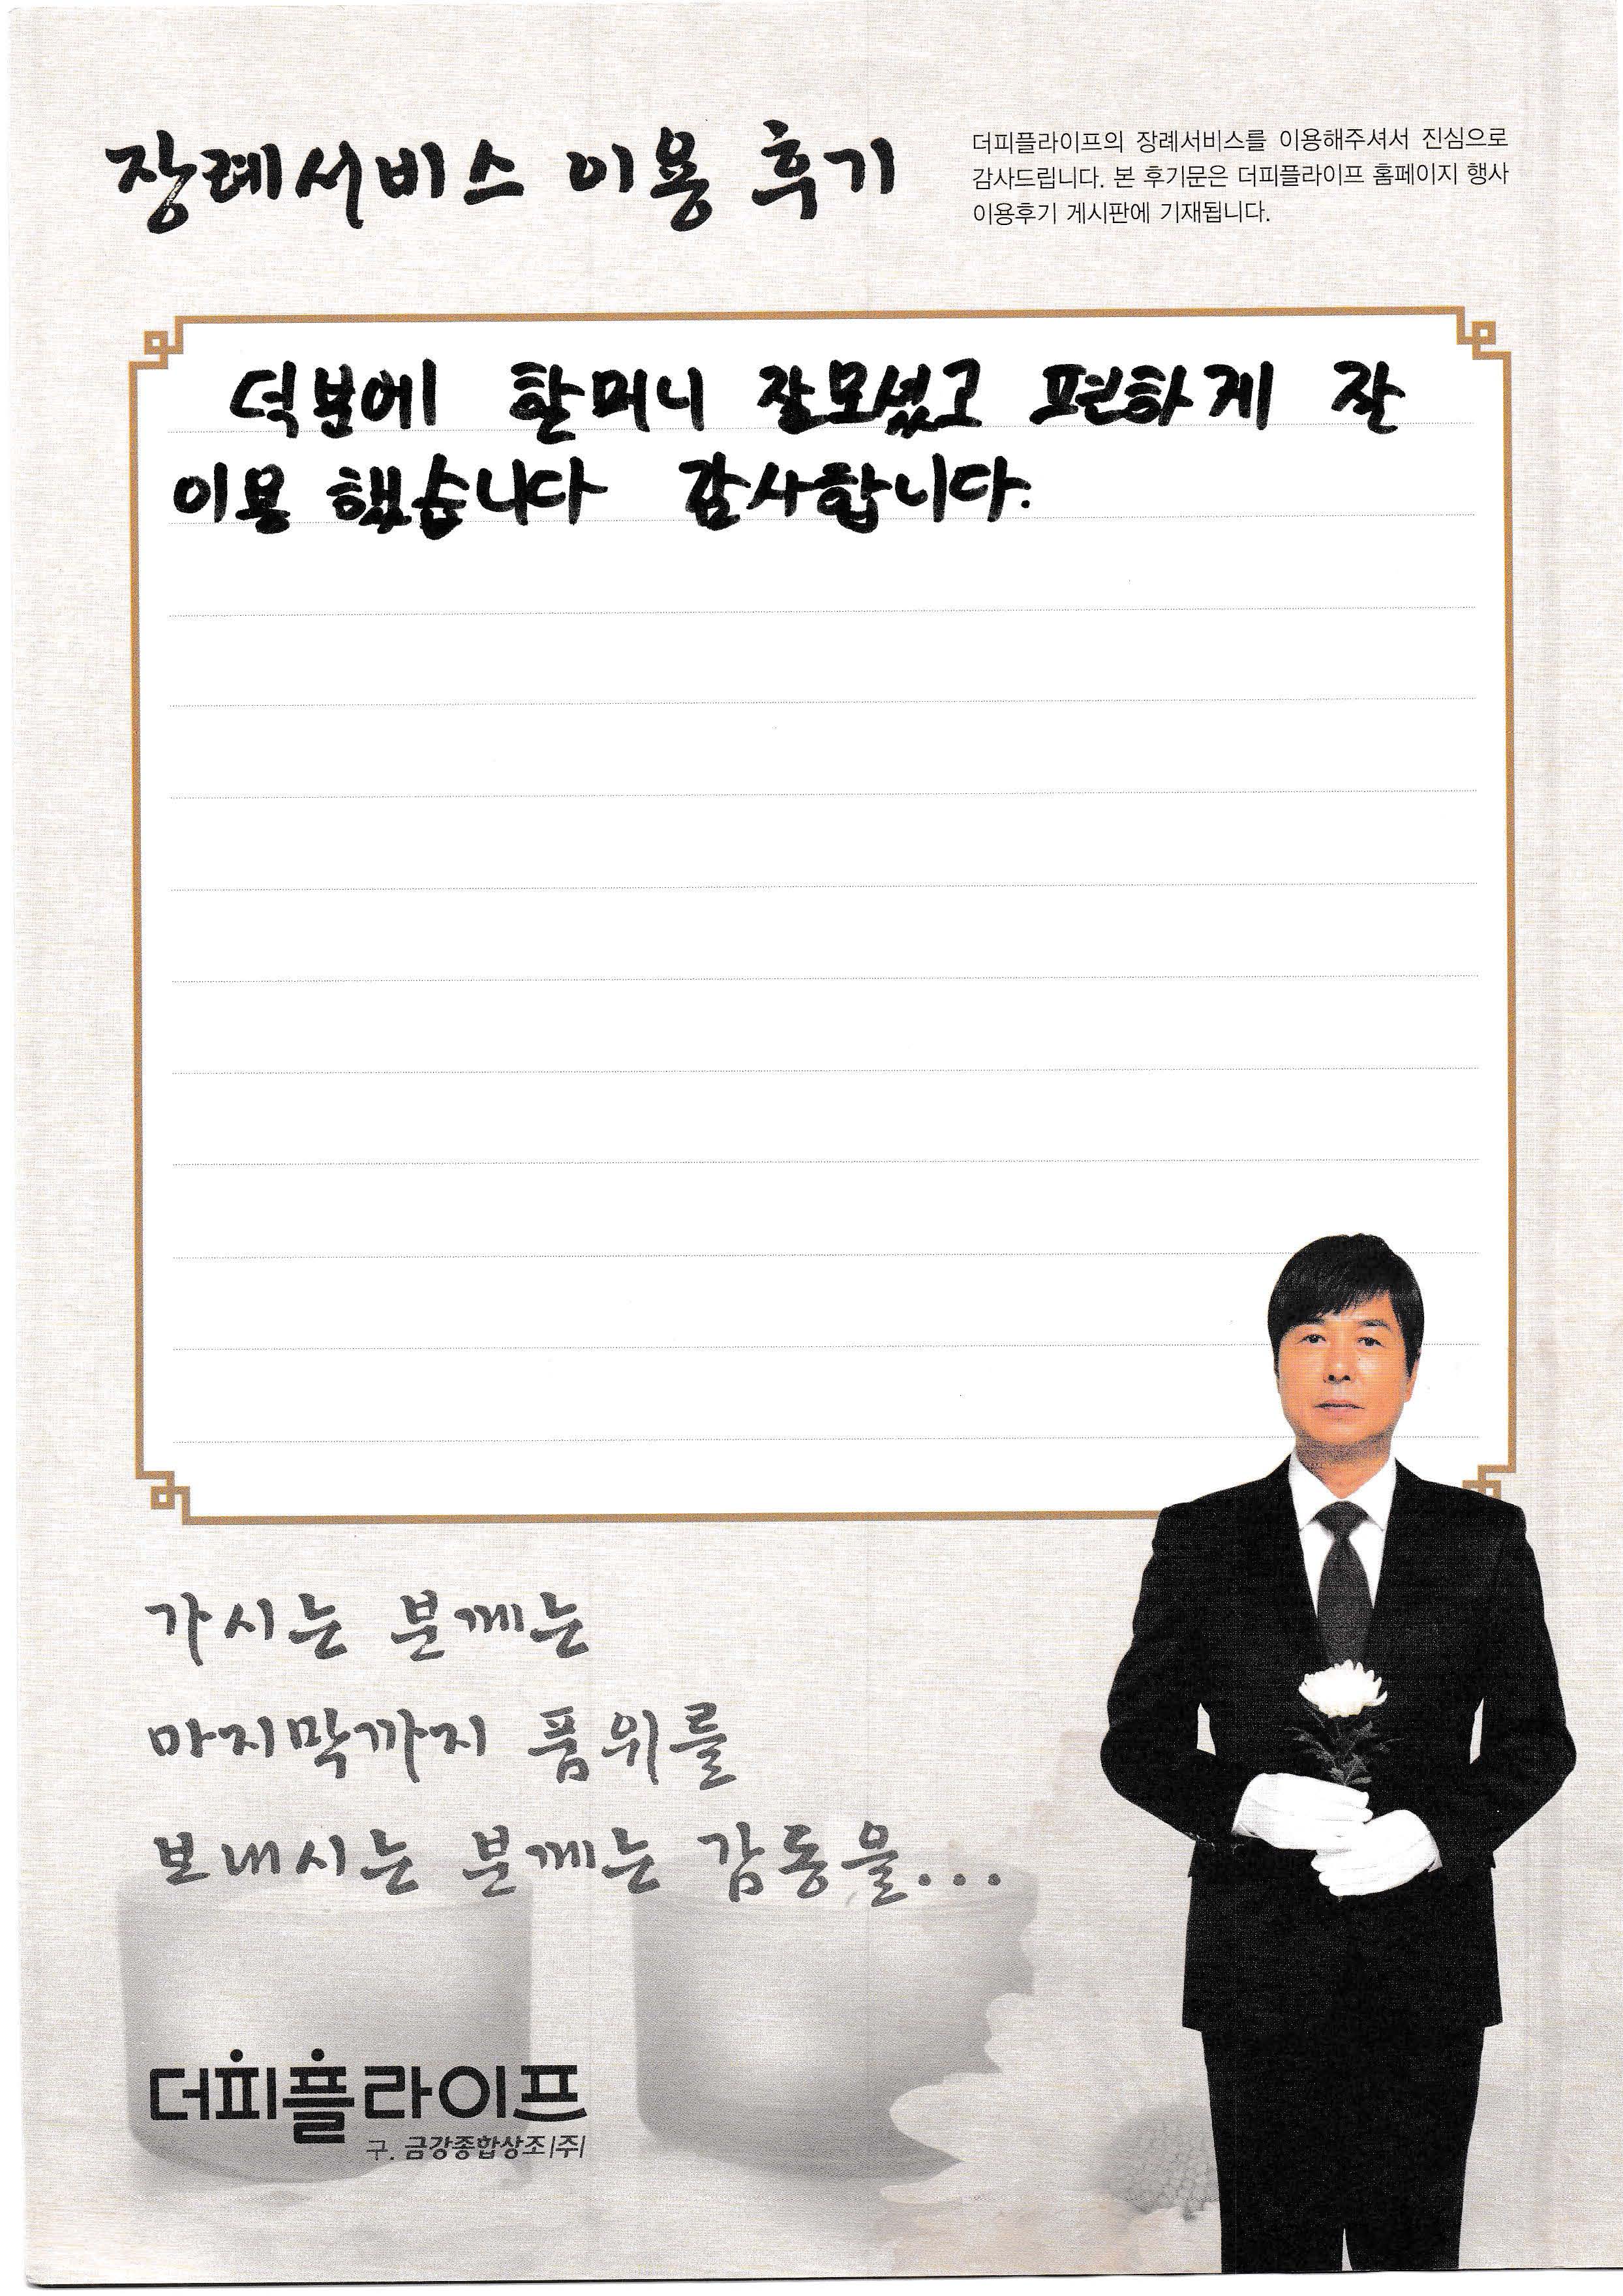 장례서비스 이용 후기
더피플라이프의 장례서비스를 이용해주셔서 진심으로
감사드립니다. 본 후기문은 더피플라이프 홈페이지 행사
이용후기 게시판에 기재됩니다.
덕분에 할머니 잘모셨고 편하게 잘
이용 했습니다 감사합니다.
가시는 분께는
마지막까지 품위를
보내시는 분께는 감동을...
더피플라이프
구. 금강종합상조|주|